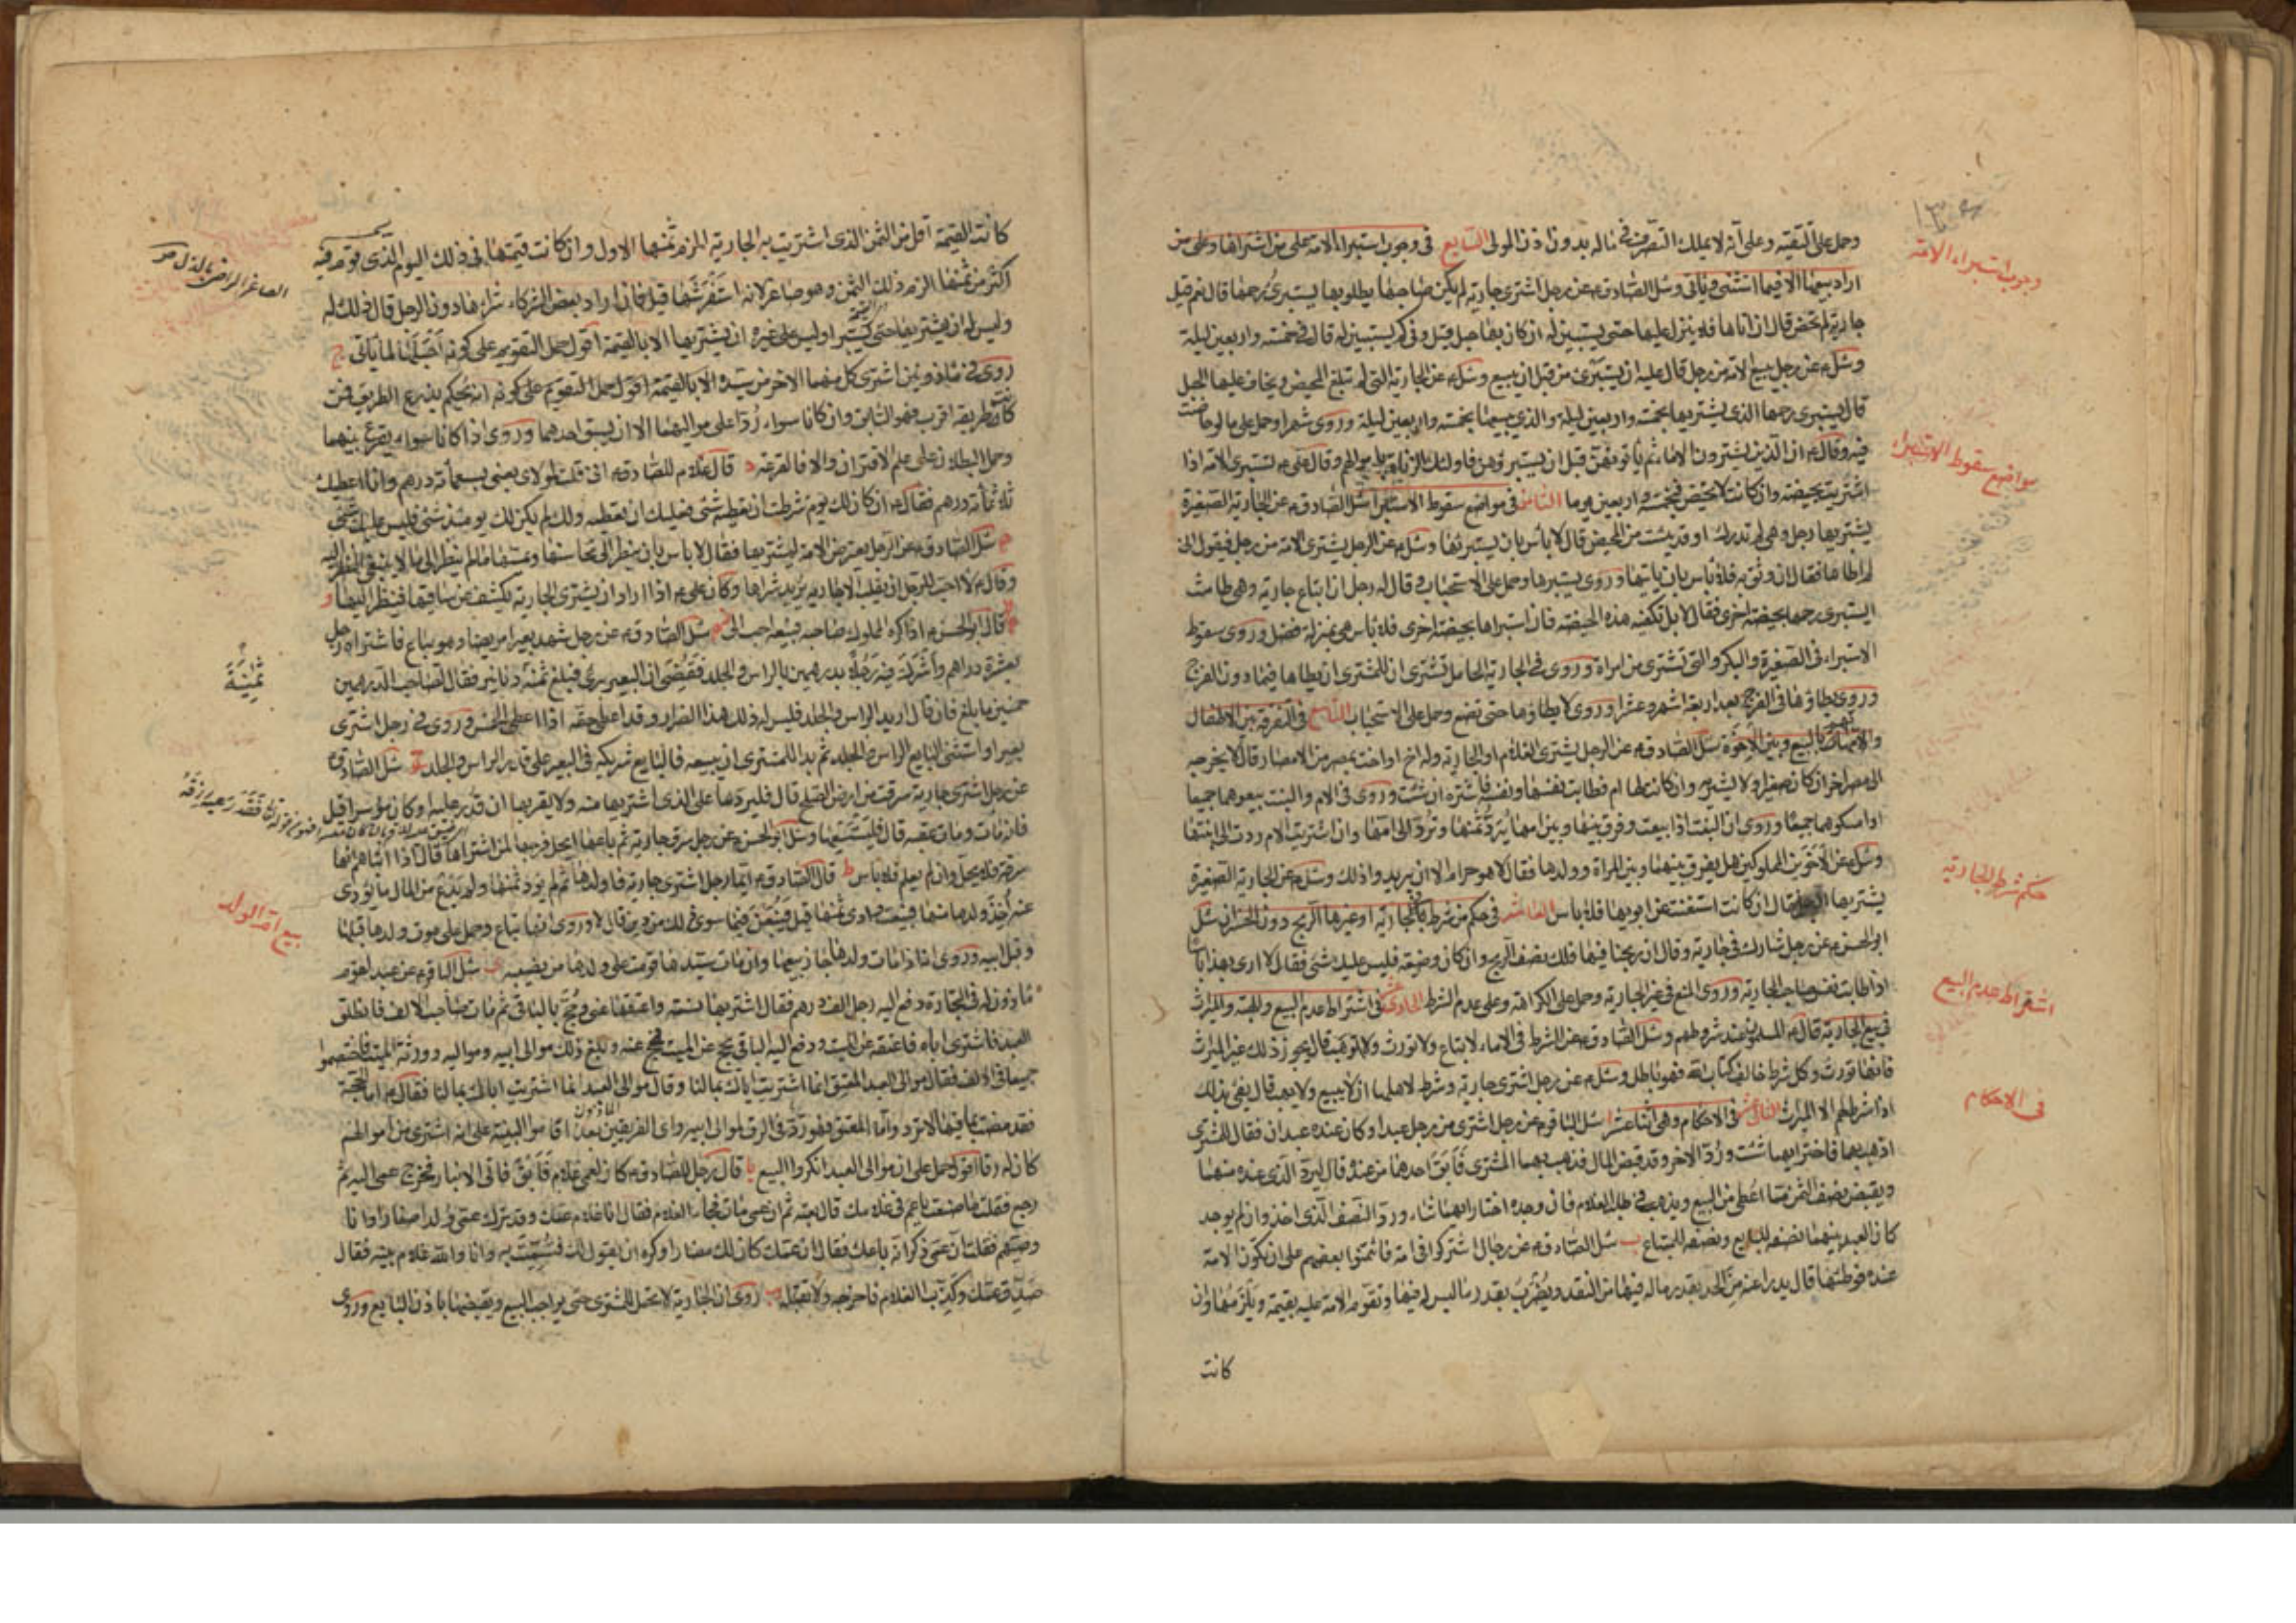 وحمل على التقية وعلى أنه لا يملك التصرف في ماله بدون اذن المولى السابع في وجوب استبراء الامة على من اشتراها وعلى من
اراد بيعها الا فيما استثنى وياتى وسئل الصادق ع عن رجل اشترى جارية لم يكن صاحبها يطاؤها يستبرئ رحمها قال نعم قيل
جارية لم تحض قال ان اتاها فلا ينزل عليها حتى يستبين له ان كان بها حبل قيل وفي كم يستبين له قال في خمسة واربعين ليلة
وسئل ع عن رجل يبيع الامة من رجل قال عليه ان يستبرئ من قبل ان يبيع وسئل ع عن الجارية التي لم تبلغ المحيض ويخاف عليها الحبل
قال يستبرى رحمها الذي يبيعها بخمسة واربعين ليلة والذي يشتريها بخمسة واربعين ليلة وروى شهرا وحمل على ما لو حاضت
فيه وقال ع ان الذين يشترون الاماء ثم ياتونهن قبل ان يستبرؤهن فاولئك الزناة باموالهم وقال على ع تستبرى الامة اذا
اشتريت بحيضة وان كانت لا تحيض فبخمسة واربعين يوما الثامن في مواضع سقوط الاستبراء سئل الصادق ع عن الجارية الصغيرة
يشتريها رجل وهي لم تدرك او قد يئست من المحيض قال لا بأس بان لا يستبرئها وسئل ع عن الرجل يشترى الامة من رجل فيقول انى
لم اطأها فقال ان وثق به فلا بأس بان ياتيها وروى يستبرها وحمل على الاستحباب وقال له رجل ان ابتاع جارية وهي طامث
ايستبرى رحمها بحيضة اخرى فقال لا بل تكفيه هذه الحيضة فان استبراها بحيضة اخرى فلا بأس هي بمنزلة فضل وروى سقوط
الاستبراء في الصغيرة والبكر والتي تشترى من امراة وروى في الجارية الحامل تشترى ان للمشترى ان يطاها فيما دون الفرج
وروى يطاؤها في الفرج بعد اربعة اشهر وعشر وروى لا يطاؤها حتى تضع وحمل على الاستحباب التاسع في التفرقة بين الاطفال
والامهات بالبيع وبين الاخوة سئل الصادق ع عن الرجل يشترى الغلام او الجارية وله اخ او اخت بمصر من الامصار قال لا يخرجه
الى مصر اخر ان كان صغيرا ولا يشتريه وان كانت لها ام فطابت نفسها ونفسه فاشتره ان شئت وروى في الام والبنت بيعوهما جميعا
او امسكوهما جميعا وروى ان البنت اذا بيعت وفرق بينها وبين امها يرد ثمنها وترد الى امها وان اشتريت الام ردت الى ابنتها
وسئل ع عن الاخوين المملوكين هل يفرق بينهما وبين المراة وولدها فقال لا هو حرام الا ان يريدوا ذلك وسئل ع عن الجارية الصغيرة
يشتريها الرجل فقال ان كانت استغنت عن ابويها فلا بأس العاشر في حكم من شرط في الجارية او غيرها الربح دون الخسران سئل
ابو الحسن ع عن رجل شارك في جارية وقال ان ربحنا فيها فلك نصف الربح وان كان وضيعة فليس عليك شئ فقال لا ارى بهذا باسا
اذا طابت نفس صاحب الجارية وروى المنع في غير الجارية وحمل على الكراهة وعلى عدم الشرط الحادى عشر في اشتراط عدم البيع والهبة والميراث
في بيع الجارية قال ع المسلمون عند شروطهم وسئل الصادق ع عن الشرط في الاماء لا تباع ولا تورث ولا توهب قال يجوز ذلك غير الميراث
فانها تورث وكل شرط خالف كتاب الله فهو باطل وسئل ع عن رجل اشترى جارية وشرط لاهلها ان لا يبيع ولا يهب قال يفى بذلك
اذا شرط لهم الا الميراث الثانى عشر في الاحكام وهي اثنا عشر ا سئل الباقر ع عن رجل اشترى من رجل عبدا وكان عنده عبدان فقال للمشترى
اذهب بهما فاختر ايهما شئت ورد الاخر وقد قبض المال فذهب بهما المشترى فابق احدهما من عنده قال ليرد الذى عنده منهما
ويقبض نصف الثمن مما اعطى من البيع ويذهب في طلب الغلام فان وجده اختار ايهما شاء ورد النصف الذى اخذ وان لم يوجد
كان العبد بينهما نصفه للبايع ونصفه للمبتاع ب سئل الصادق ع عن رجال اشتركوا في امة فائتمنوا بعضهم على ان تكون الامة
عنده فوطئها قال يدرا عنه من الحد بقدر ماله فيها من النقد ويضرب بقدر ما ليس له فيها وتقوم الامة عليه بقيمة ويلزمها وان
كانت
وجوب استبراء الامة
مواضع سقوط الاستبراء
حكم شرط الجارية
اشتراط عدم البيع
في الاحكام
كانت القيمة اقل من الثمن الذى اشتريت به الجارية الزم ثمنها الاول وان كانت قيمتها في ذلك اليوم الذى تقوم فيه
اكثر من ثمنها الزم ذلك الثمن وهو صاغر لانه استفرشها قيل فان اراد بعض الشركاء شراءها دون الرجل قال ذلك له
وليس له ان يشتريها حتى يستبرا وليس على غيره ان يشتريها الا بالقيمة اقول حمل التقويم على كونه احبلها لما ياتى ج
روى في ماذونين اشترى كل منهما الاخر من سيده انه يحكم بذرع الطريق فمن
كان طريقه اقرب فهو السابق وان كانا سواء ردا على مواليهما الا ان يسبق احدهما وروى اذا كانا سواء يقرع بينهما
وحمل البطلان على علم الاقتران والا فالقرعة د قال غلام للصادق ع انى قلت لمولاى بعنى بسبعمأة درهم وانا اعطيك
ثلاثمأة درهم فقال ع ان كان لك يوم شرطت ان تعطيه شئ فعليك ان تعطيه ولك لم يكن لك يومئذ شئ فليس عليك شئ
ه سئل الصادق ع عن الرجل يعترض الامة ليشتريها فقال لا باس بان ينظر الى محاسنها ويمسها ما لم ينظر الى ما لا ينبغى النظر اليه
وقال ع لا احب للرجل ان يقلب الا جارية يريد شراها وكان على ع اذا اراد ان يشترى الجارية يكشف عن ساقيها فينظر اليها و
قال ابو الحسن ع اذا كره المملوك صاحبه فبيعه احب الى ز سئل الصادق ع عن رجل شهد بعيرا مريضا وهو يباع فاشتراه رجل
بعشرة دراهم واشرك فيه رجلا بدرهمين بالراس والجلد فقضى ان البعير برئ فبلغ ثمنه دنانير فقال لصاحب الدرهمين
خمس ما بلغ فان قال اريد الراس والجلد فليس له ذلك هذا الضرار وقد اعطى حقه اذا اعطى الخمس وروى في رجل اشترى
بعيرا واستثنى البايع الراس والجلد ثم بدا للمشترى ان يبيعه قال البايع شريكه في البعير على قدر الراس والجلد ح سئل الصادق ع
عن رجل اشترى جارية سرقت من ارض الصلح قال فليردها على الذى اشتريها منه ولا يقربها ان قدر عليه او كان موسرا قيل
فانه مات ومات عقبه قال فليستسعها وسئل ابو الحسن ع عن رجل سرق جارية ثم باعها ايحل فرجها لمن اشتراها قال اذا انبأهم انها
سرقة فلا يحل وان لم يعلم فلا بأس ط قال الصادق ع ايما رجل اشترى جارية فاولدها ثم لم يؤد ثمنها ولم يدع من المال ما يؤدى
عنه اخذ ولدها منها فبيعت وادى ثمنها قيل فيبعن فيما سوى ذلك من دين قال لا وروى انها تباع وحمل على موت ولدها قبلها
وقبل ابيه وروى انها اذا مات ولدها جاز بيعها وان مات سيدها قومت على ولدها من نصيبه ى سئل الباقر ع عن عبد لقوم
ماذون له في التجارة دفع اليه رجل الف درهم فقال اشتر بها نسمة واعتقها عنى وحج بالباقى ثم مات صاحب الالف فانطلق
العبد فاشترى اباه فاعتقه عن الميت ودفع اليه الباقى يحج عن الميت فحج عنه وبلغ ذلك موالى ابيه ومواليه وورثة الميت فاختصموا
جميعا في الالف فقال موالى العبد المعتق انما اشتريت اباك بمالنا وقال موالى العبد انما اشتريت اباك بمالنا فقال ع اما الحجة
فقد مضت بما فيها لا ترد واما المعتق فهو رد في الرق لموالى ابيه واى الفريقين بعد اقاموا البينة على انه اشترى من اموالهم
كان له رقا اقول حمل على ان موالى العبد انكروا البيع يا قال رجل للصادق ع كان لعمى غلام فابق فاتى الانبار فخرج عمى اليه ثم
رجع فقلت ما صنعت يا عم في غلامك قال بعته ثم ان عمى مات فجاء الغلام فقال انا غلام عمك وقد ترك عمى ولدا صغارا وانا
وصيهم فقلت ان عمى ذكر انه باعك فقال ان عمك كان لك مضارا وكره ان يقول لك فتشمت به وانا والله غلام بنيه فقال
صدق عمك وكذب الغلام فاخرجه ولا تقبله يب روى ان الجارية لا تحل للمشترى حتى يواجب البيع ويقبضها باذن البايع وروى
الصاغر الراضى بالذل
بيع ام الولد